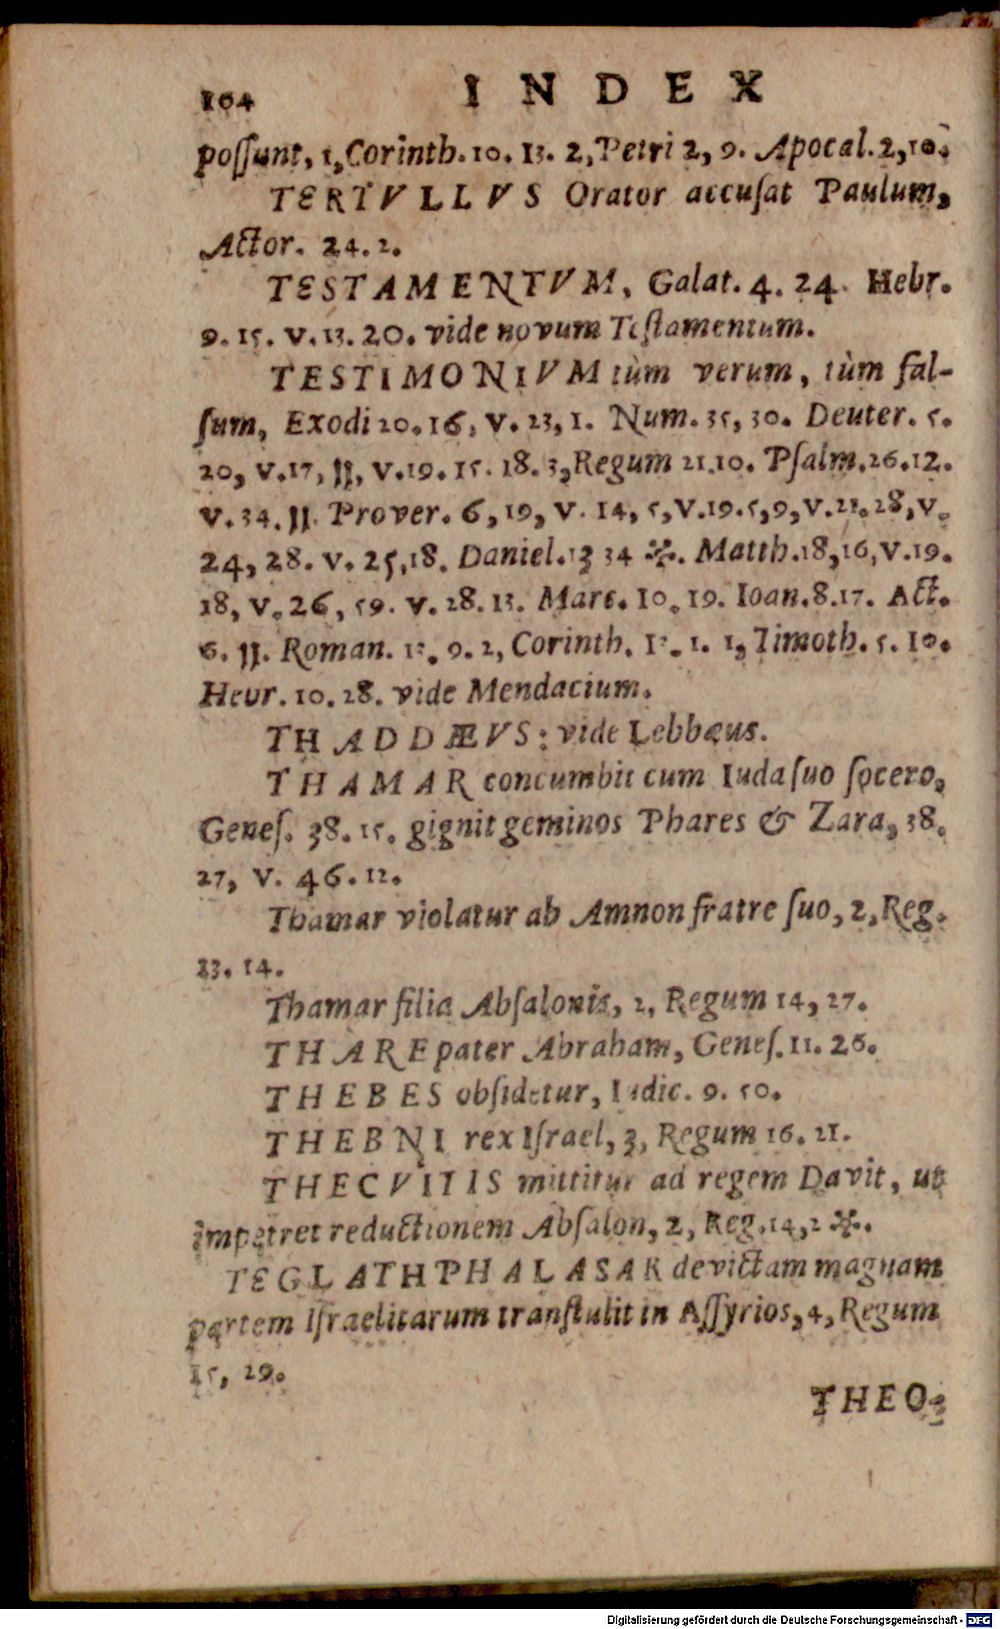 164 INDEX
poſſunt, 1, Corinth. 10. 13. 2, Petri 2, 9. Apocal. 2, 10.
TERTVLLVS Orator accuſat Paulum,
Actor. 24. 2.
TESTAMENTVM, Galat. 4. 24. Hebr.
9. 15. v. 13. 20. vide novum Teſtamentum.
TESTIMONIVM tùm verum, tùm fal-
ſum, Exodi 20. 16, v. 23, 1. Num. 35, 30. Deuter. 5.
20, v. 17, 11, v. 19. 15. 18. 3, Regum 21. 10. Pſalm. 26. 12.
v. 34. 11. Prover. 6, 19, v. 14, 5, v. 19. 5, 9, v. 21. 28, v.
24, 28. v. 25, 18. Daniel. 13 34 ※. Matth. 18, 16, v. 19.
18, v. 26, 59. v. 28. 13. Marc. 10. 19. Ioan. 8. 17. Act.
6. 11. Roman. 13. 9. 2, Corinth. 13. 1. 1, Timoth. 5. 10.
Hebr. 10. 28. vide Mendacium.
THADDÆVS: vide Lebbæus.
THAMAR concumbit cum Iuda ſuo ſocero,
Geneſ. 38. 15. gignit geminos Phares & Zara, 38.
27, v. 46. 12.
Thamar violatur ab Amnon fratre ſuo, 2, Reg.
13. 14.
Thamar filia Abſalonis, 2, Regum 14, 27.
THARE pater Abraham, Geneſ. 11. 26.
THEBES obſidetur, Iudic. 9. 50.
THEBNI rex Iſrael, 3, Regum 16. 21.
THECVITIS mittitur ad regem Davit, ut
impetret reductionem Abſalon, 2, Reg. 14, 2 ※.
TEGLATHPHALASAR devictam magnam
partem Iſraelitarum tranſtulit in Aſſyrios, 4, Regum
15, 29.
THEO-
Digitalisierung gefördert durch die Deutsche Forschungsgemeinschaft - DFG